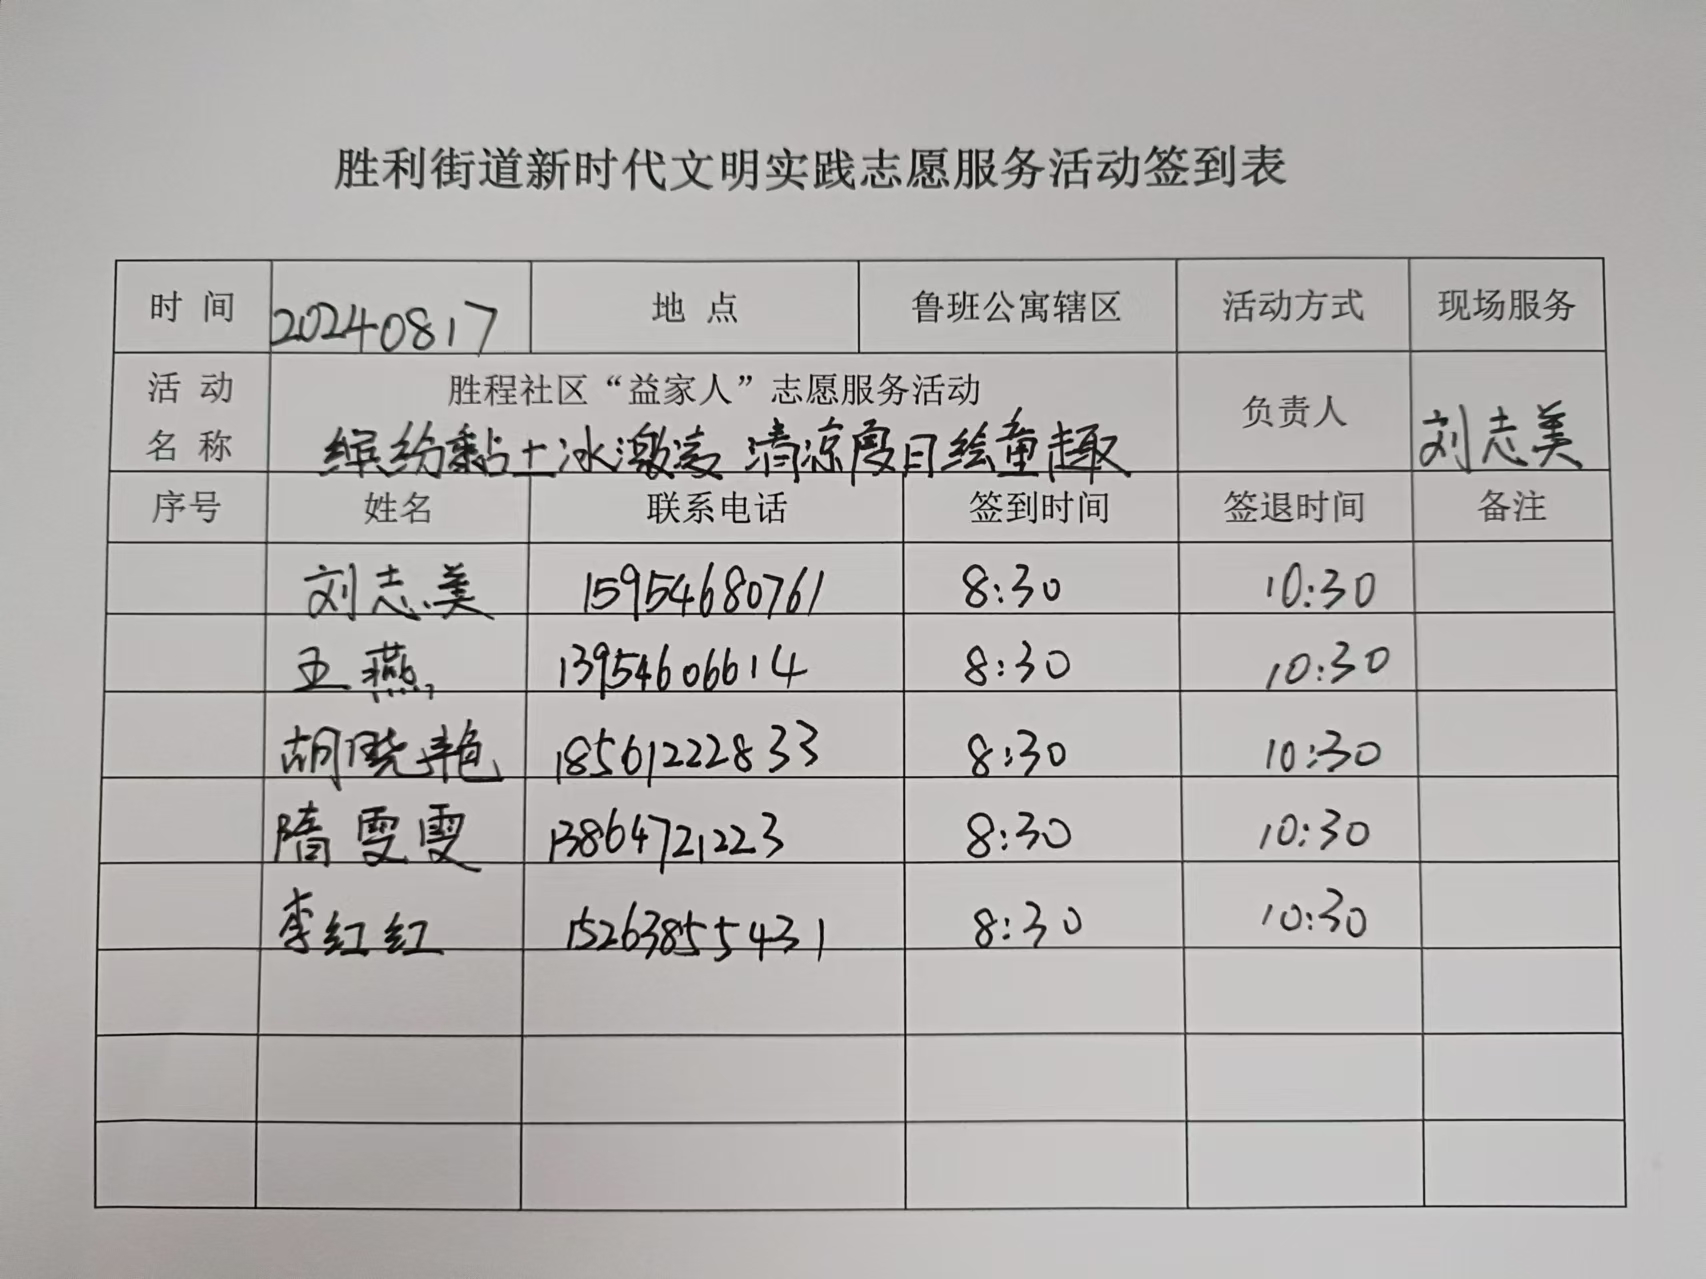 胜利街道新时代文明实践志愿服务活动签到表
时 间 20240817 地 点 鲁班公寓辖区 活动方式 现场服务
活 动 名 称 胜程社区“益家人”志愿服务活动 负责人 刘志美
缤纷黏土冰激凌 清凉夏日绘童趣
序号 姓名 联系电话 签到时间 签退时间 备注
刘志美 15954680761 8:30 10:30
王燕 13954606614 8:30 10:30
胡晓艳 18561222833 8:30 10:30
隋雯雯 13864721223 8:30 10:30
李红红 15263855431 8:30 10:30